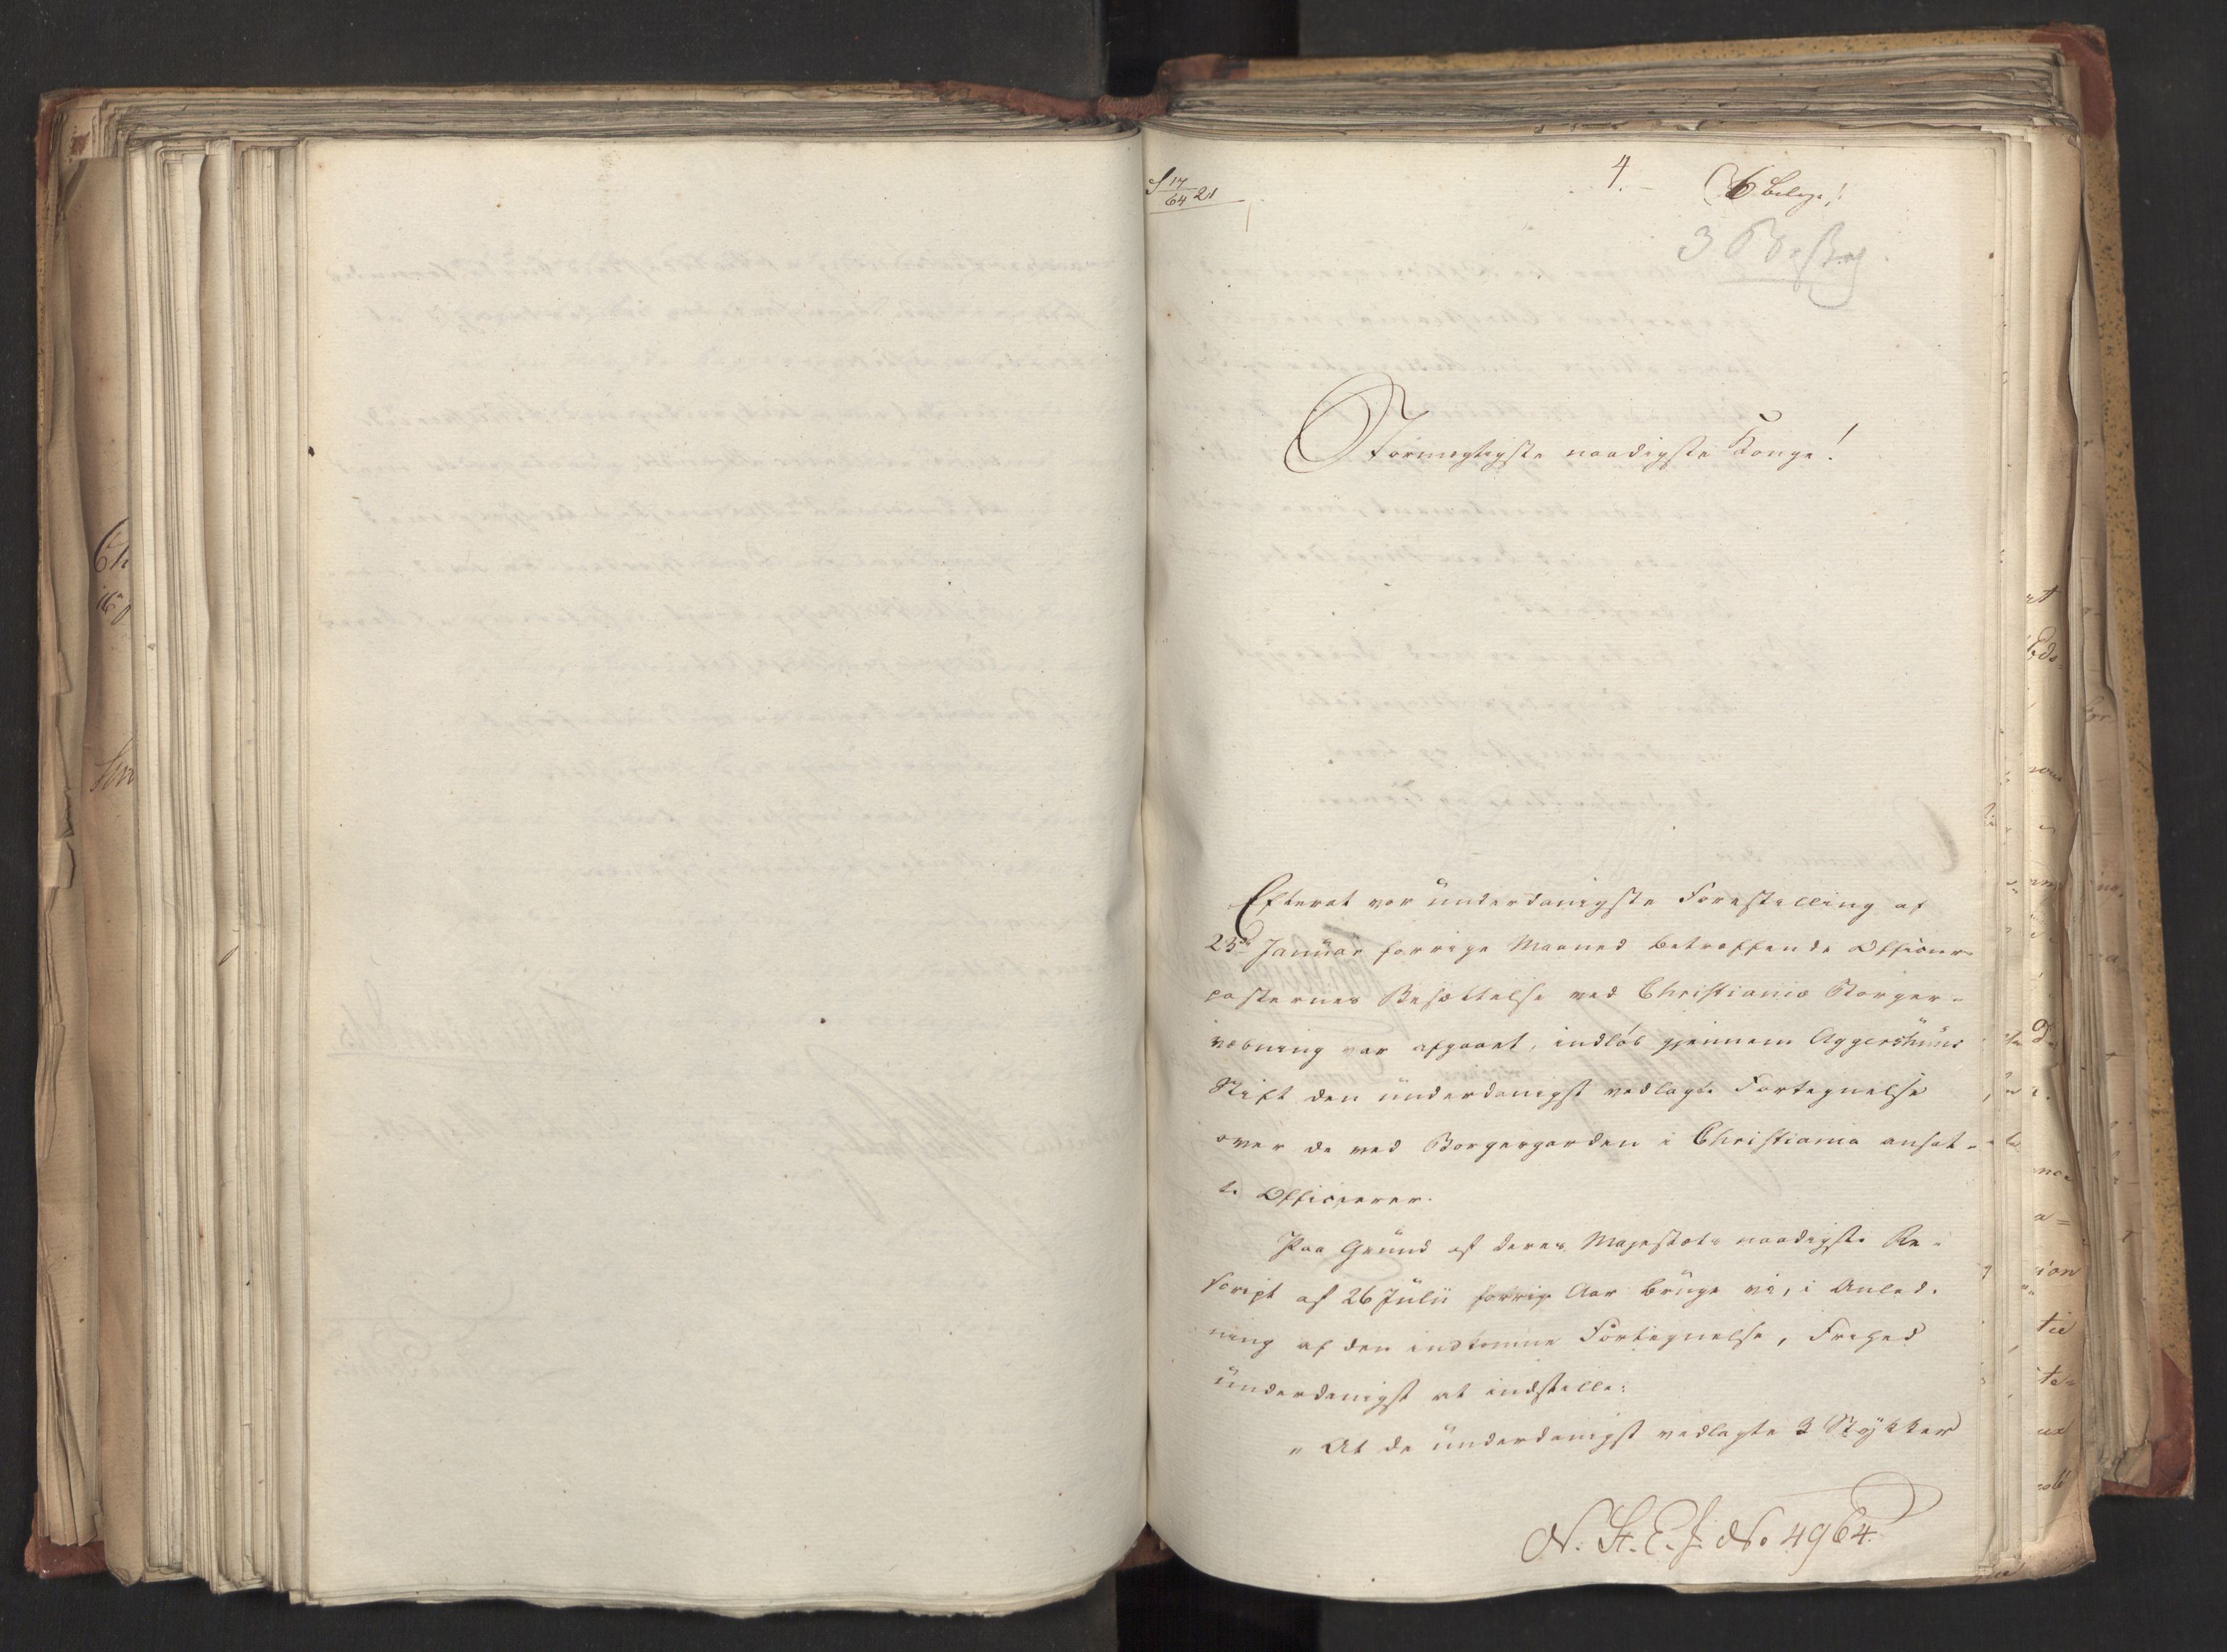 4.
6 bilage!
64 21
3
Stormægtigste naadigste Konge!
Efterat vor underdanigste Forestilling af
25de Januar forrige Maaned betreffende Officeer-
posternes Besættelse ved Christiania Borger-
væbning var afgaaet, indløb gjennem Aggershuus
Stift den underdanigst vedlagte Fortegnelse
over de ved Borgergarden i Christiania ansat-
te Officierer.
Paa Grund af Deres Majestæts naadigste Re-
script af 26 Julii forrige Aar bruge vi, i Anled-
ning af den indkomne Fortegnelse, Frihed
underdanigst at indstille:
„At de underdanigst vedlagte 3 Stykker
N. St. E. J. No 4964.